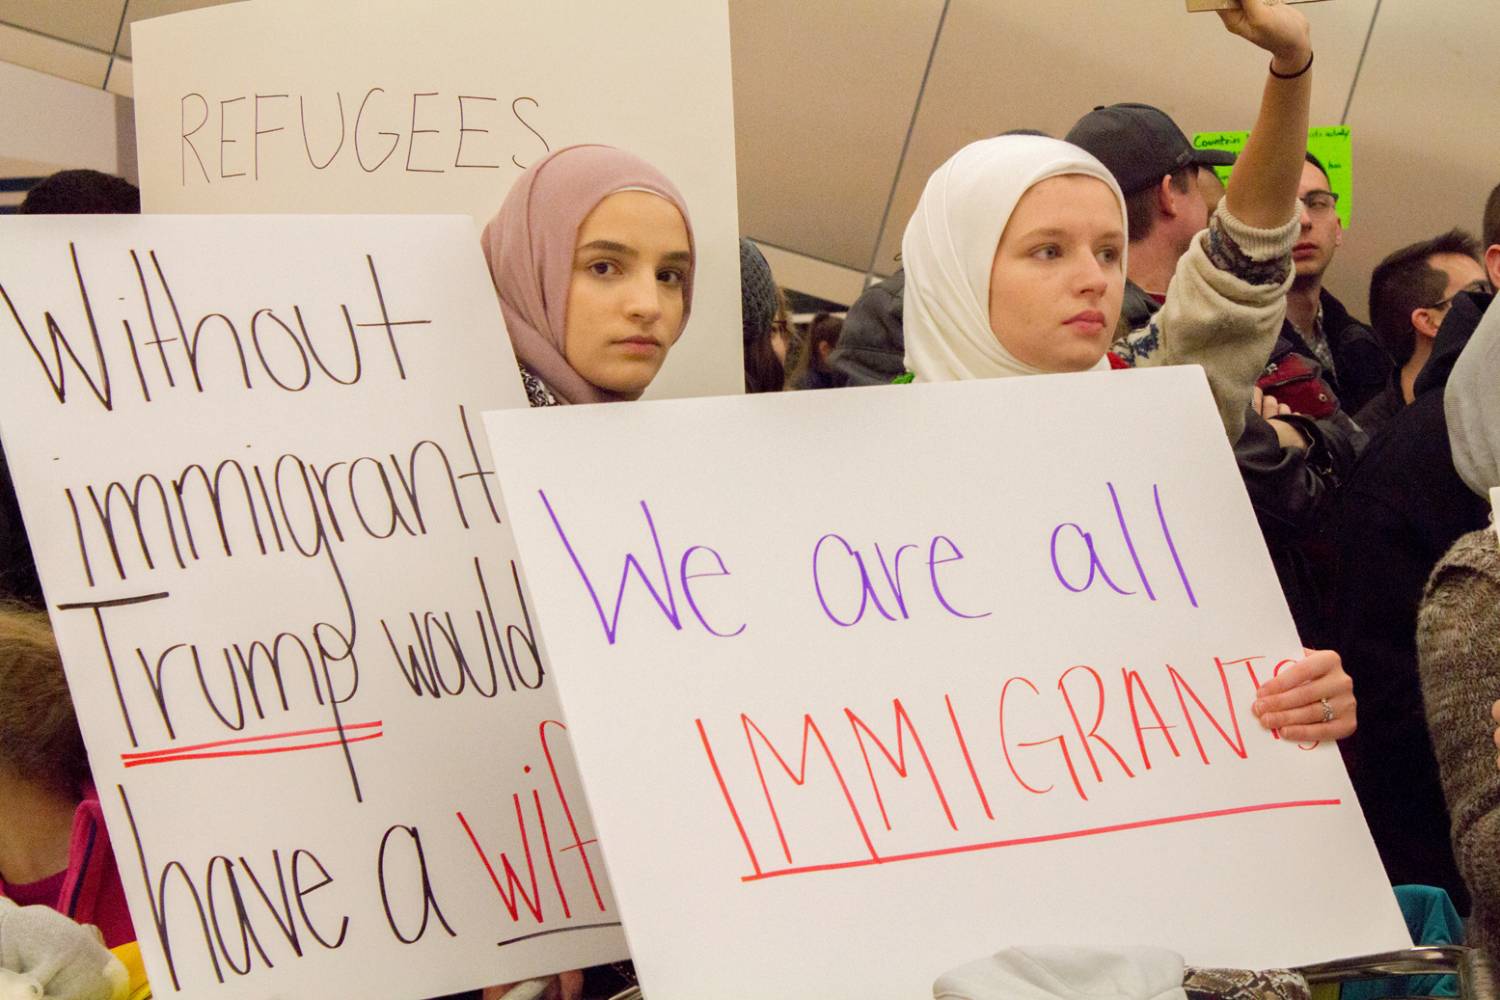 REFUGEES
Without
immigrant
Trump would
have a wif
We are all
IMMIGRANTS
Countries